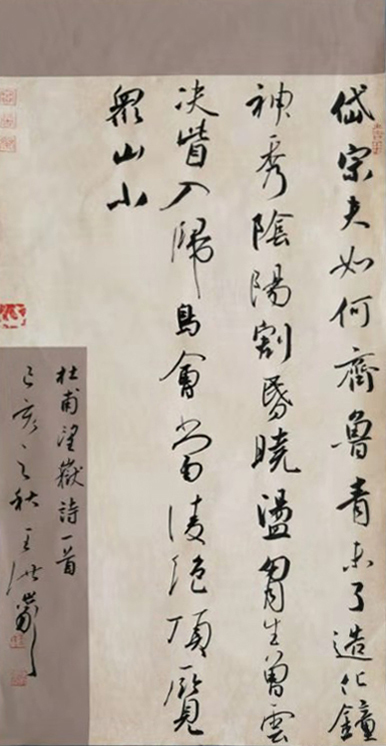 岱宗夫如何齊魯青未了造化鐘
神秀陰陽割昏曉盪胷生曾雲
決眥入歸鳥會當凌絕頂覽
眾山小
杜甫望嶽詩一首
己亥之秋王洪